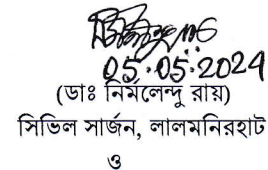 05.05.2024
(ডাঃ নির্মলেন্দু রায়)
সিভিল সার্জন, লালমনিরহাট
ও